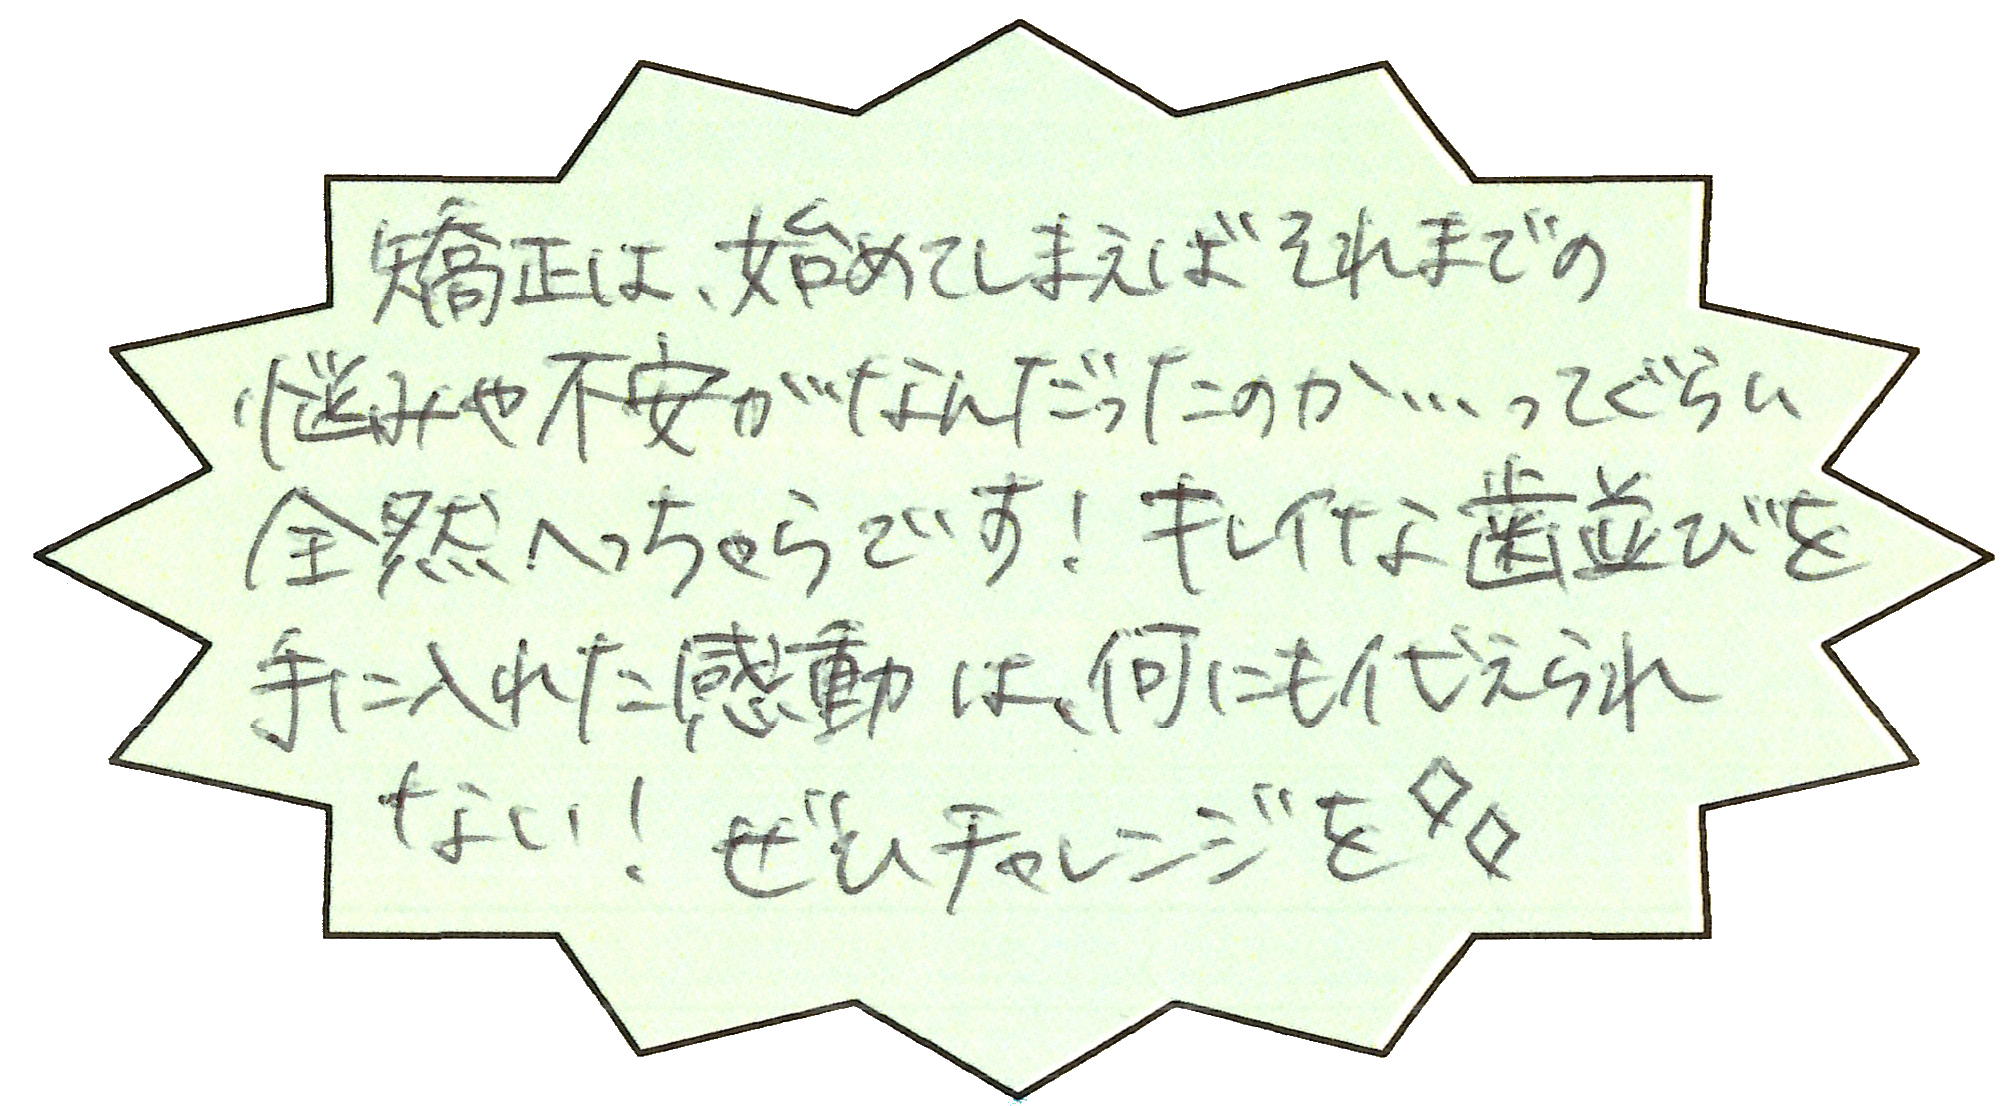 矯正は、始めてしまえばそれまでの
悩みや不安がなんだったのか…ってぐらい
全然へっちゃらです！キレイな歯並びを
手に入れた感動は、何にも代えられ
ない！ぜひチャレンジを◇◇